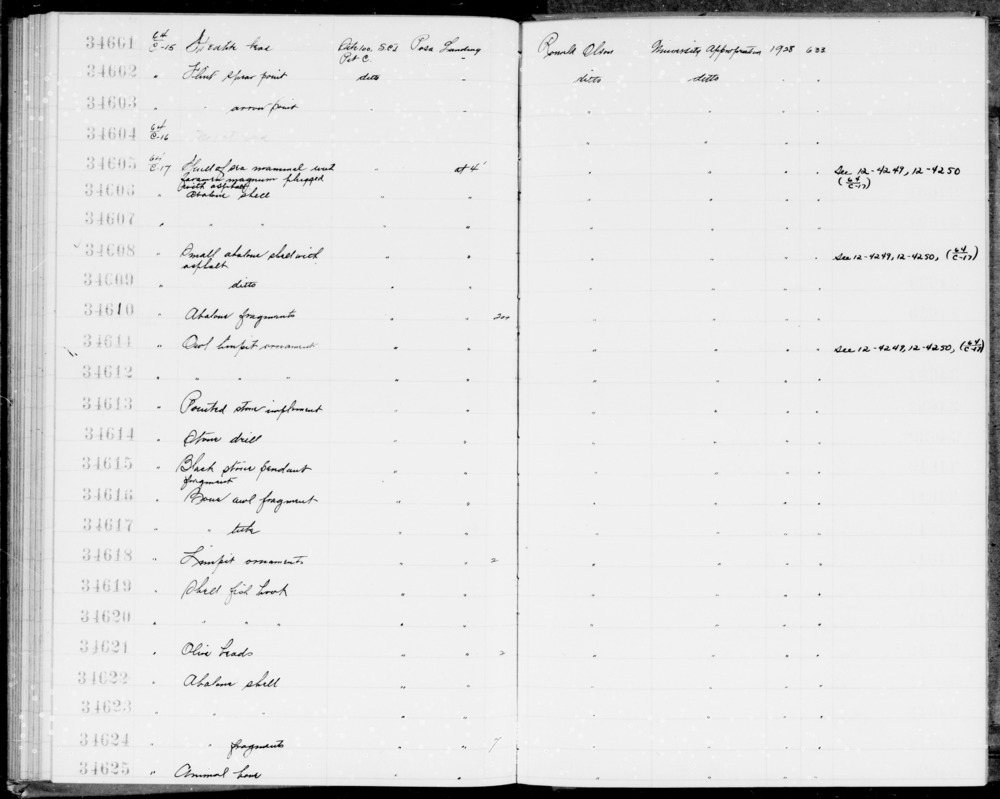 34601 64/C-15 Steatite Site 100, SCrI Poza Landing Ronald Olson University Appropriation 1928 633
Pit C.
34602 " Flint spear point ditto " ditto ditto " "
34603 " " arrow point " " " " " "
34604 64/C-16
34605 64/C-17 Skull of sea mammal with " at 4' " " " " See 12-4249, 12-4250
foramen magnum plugged (64/C-17)
with asphalt
34606 " Abalone shell " " " " " "
34607 " " " " " " " " "
34608 " Small abalone shell with " " " " " " See 12-4249, 12-4250, (64/C-17)
asphalt
34609 " ditto " " " " " "
34610 " Abalone fragments " " " " " "
34611 " Owl limpit ornament " " " " " " See 12-4249, 12-4250, (64/C-17)
34612 " " " " " " " " " "
34613 " Pointed stone implement " " " " " "
34614 " Stone drill " " " " " "
34615 " Black stone pendant " " " " " "
fragment
34616 " Bone awl fragment " " " " " "
34617 " " tube " " " " " "
34618 " Limpit ornaments " " 2 " " " "
34619 " Shell fish hook " " " " " "
34620 " " " " " " " " " "
34621 " Olive beads " " 2 " " " "
34622 " Abalone shell " " " " " "
34623 " " " " " " " " "
34624 " " fragments " " 7 " " " "
34625 " Animal bone " " " " " "